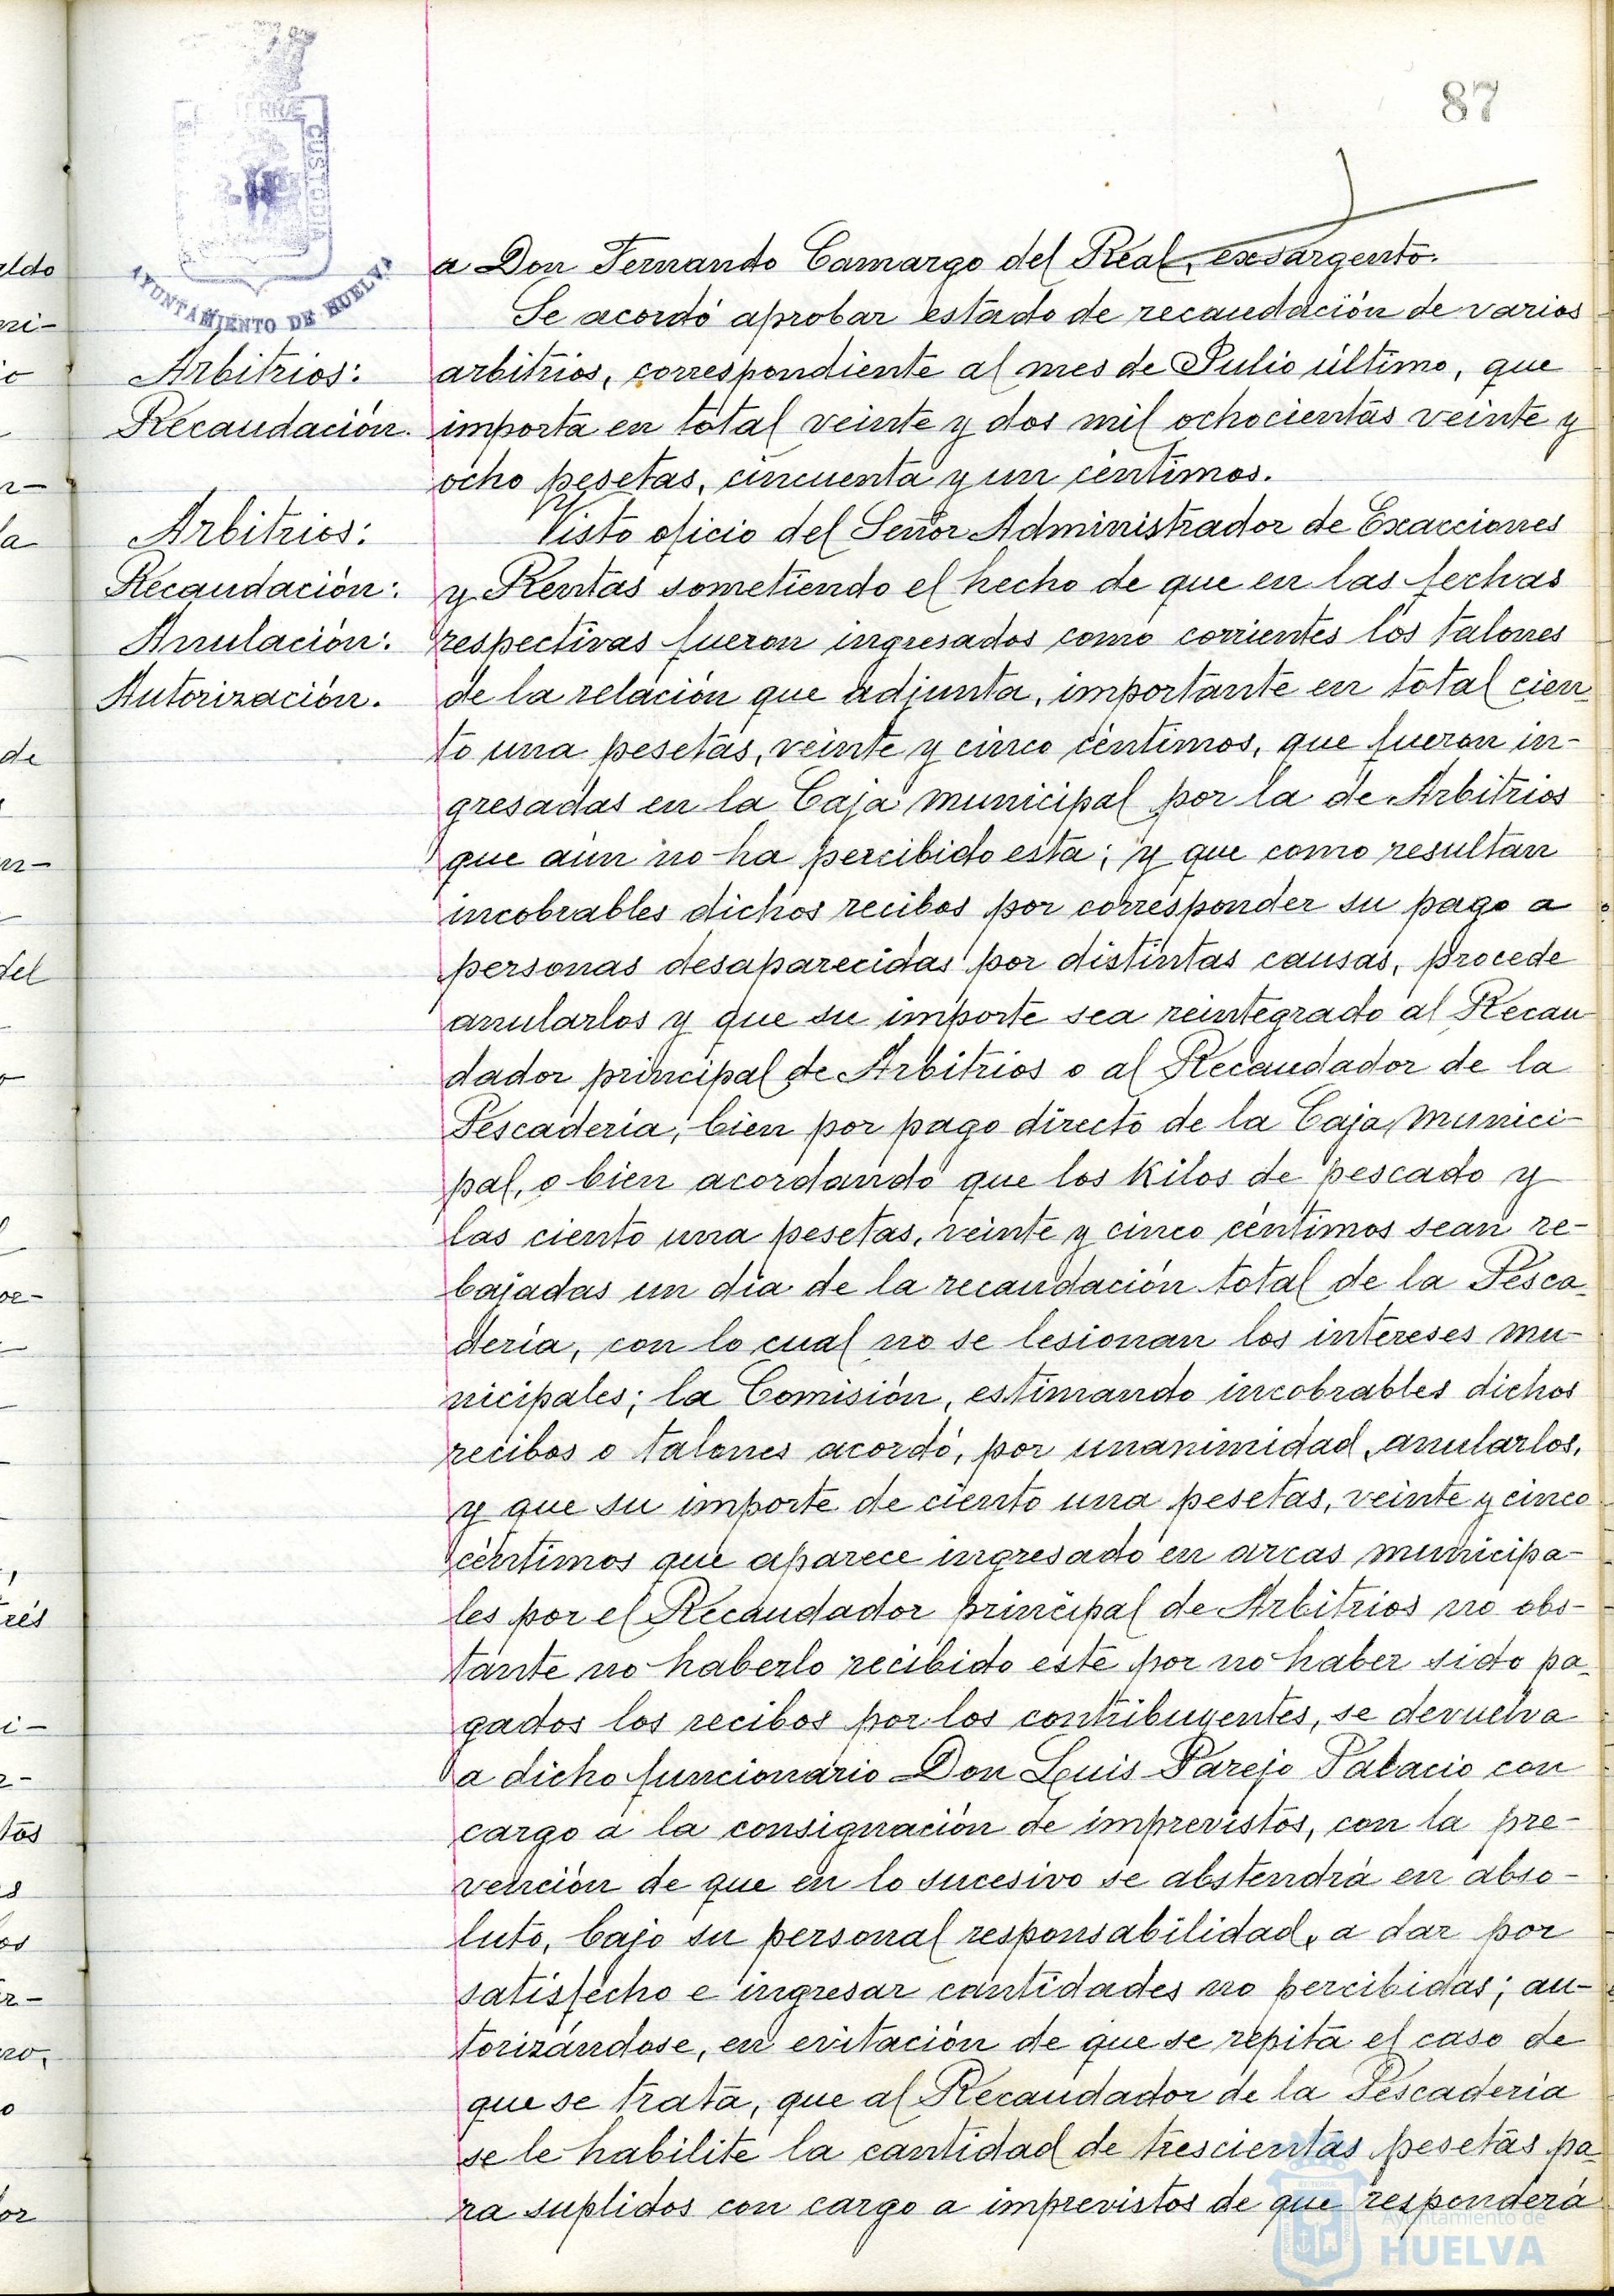 87
AYUNTAMIENTO DE HUELVA
CUSTODIA
a Don Fernando Camargo del Real, exsargento.
Se acordó aprobar estado de recaudación de varios
Arbitrios:
arbitrios, correspondiente al mes de Julio último, que
Recaudación.
importa en total veinte y dos mil ochocientas veinte y
ocho pesetas, cincuenta y un céntimos.
Arbitrios:
Visto oficio del Señor Administrador de Exacciones
Recaudación:
y Rentas sometiendo el hecho de que en las fechas
Anulación:
respectivas fueron ingresados como corrientes los talones
Autorización.
de la relación que adjunta, importante en total cien-
to una pesetas, veinte y cinco céntimos, que fueron in-
gresadas en la Caja municipal por la de Arbitrios
que aún no ha percibido esta; y que como resultan
incobrables dichos recibos por corresponder su pago a
personas desaparecidas por distintas causas, procede
anularlos y que su importe sea reintegrado al Recau-
dador principal de Arbitrios o al Recaudador de la
Pescadería, bien por pago directo de la Caja munici-
pal, o bien acordando que los kilos de pescado y
las ciento una pesetas, veinte y cinco céntimos sean re-
bajadas un día de la recaudación total de la Pesca-
dería, con lo cual no se lesionan los intereses mu-
nicipales; la Comisión, estimando incobrables dichos
recibos o talones acordó, por unanimidad, anularlos,
y que su importe de ciento una pesetas, veinte y cinco
céntimos que aparece ingresado en arcas municipa-
les por el Recaudador principal de Arbitrios no obs-
tante no haberlo recibido este por no haber sido pa-
gados los recibos por los contribuyentes, se devuelva
a dicho funcionario Don Luis Parejo Palacio con
cargo a la consignación de imprevistos, con la pre-
vención de que en lo sucesivo se abstendrá en abso-
luto, bajo su personal responsabilidad, a dar por
satisfecho e ingresar cantidades no percibidas; au-
torizándose, en evitación de que se repita el caso de
que se trata, que al Recaudador de la Pescadería
se le habilite la cantidad de trescientas pesetas pa-
ra suplidos con cargo a imprevistos de que responderá
Ayuntamiento de
HUELVA